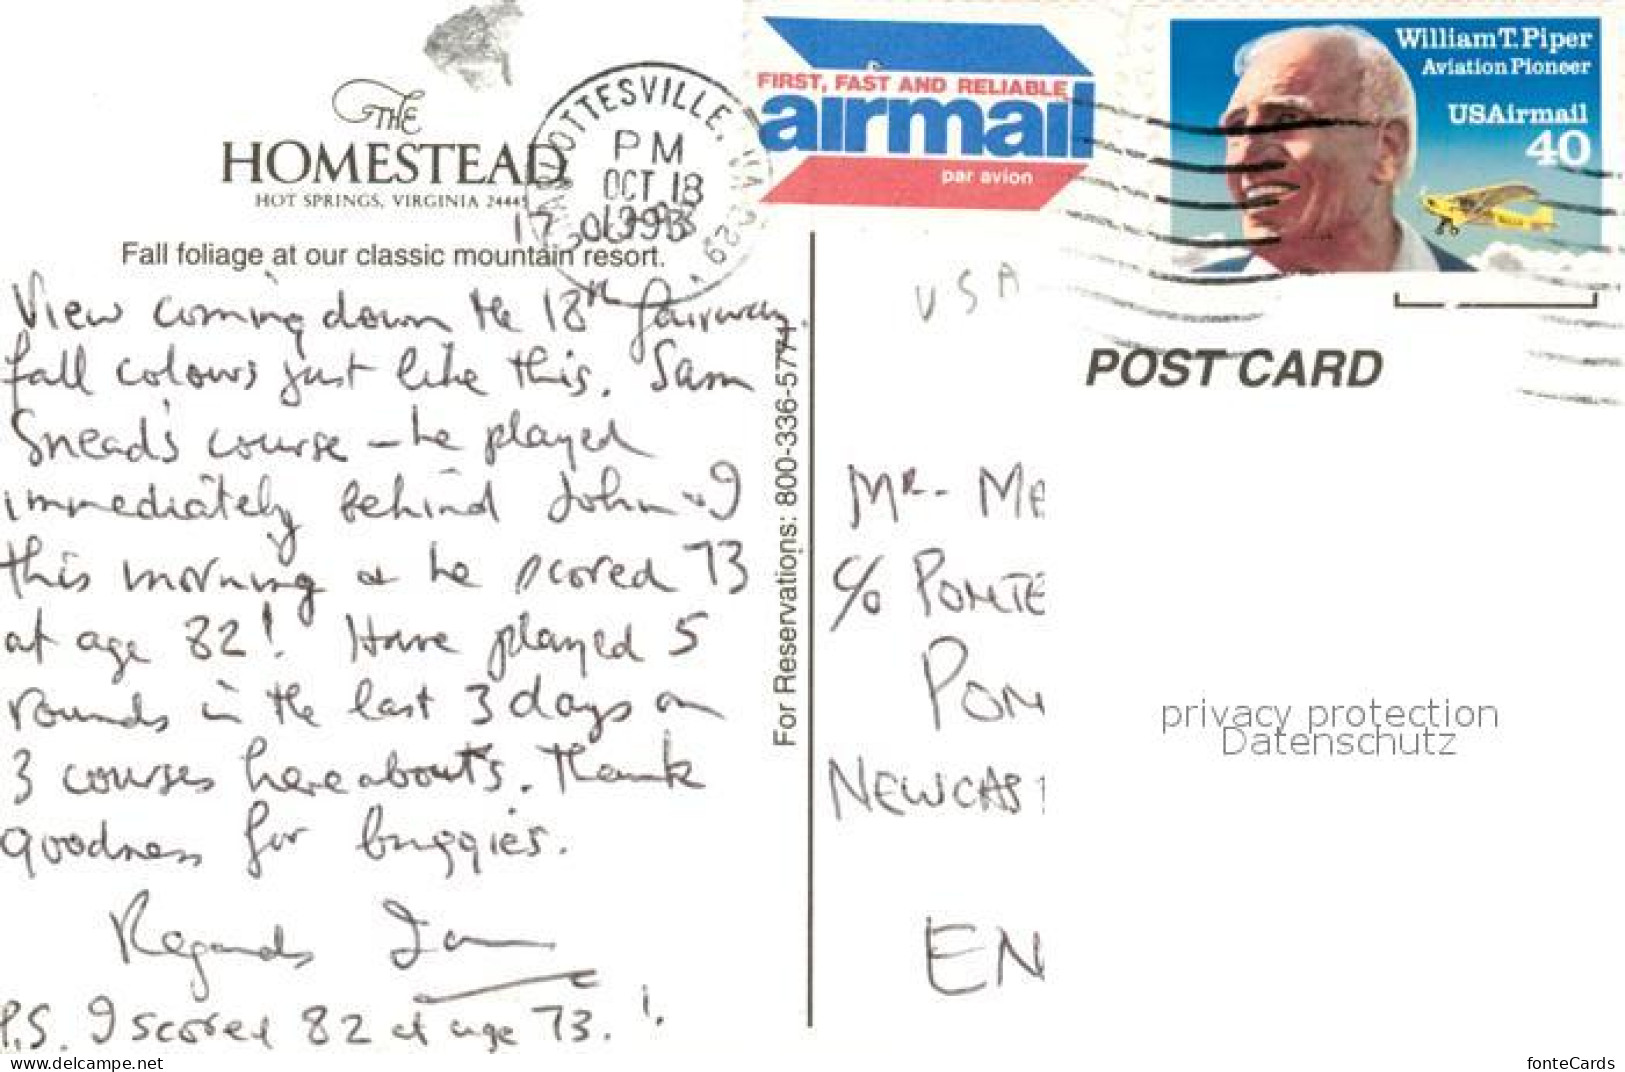 THE
HOMESTEAD
HOT SPRINGS, VIRGINIA 24445
Fall foliage at our classic mountain resort.
OTTESVILLE, VA 229
PM
OCT 18
1993
17
FIRST, FAST AND RELIABLE
airmail
par avion
William T. Piper
Aviation Pioneer
USAirmail
40
View coming down the 18th fairway.
fall colours just like this. Sam
Snead's course – he played
immediately behind John & I
this morning & he scored 73
at age 82! Have played 5
rounds in the last 3 days on
3 courses hereabouts. Thank
goodness for buggies.
Regards Ian
P.S. I scored 82 at age 73. !
For Reservations: 800-336-5771
USA
POST CARD
MR. MA
C/O PONTE
PON
NEWCAST
EN
privacy protection
Datenschutz
www.delcampe.net
fonteCards